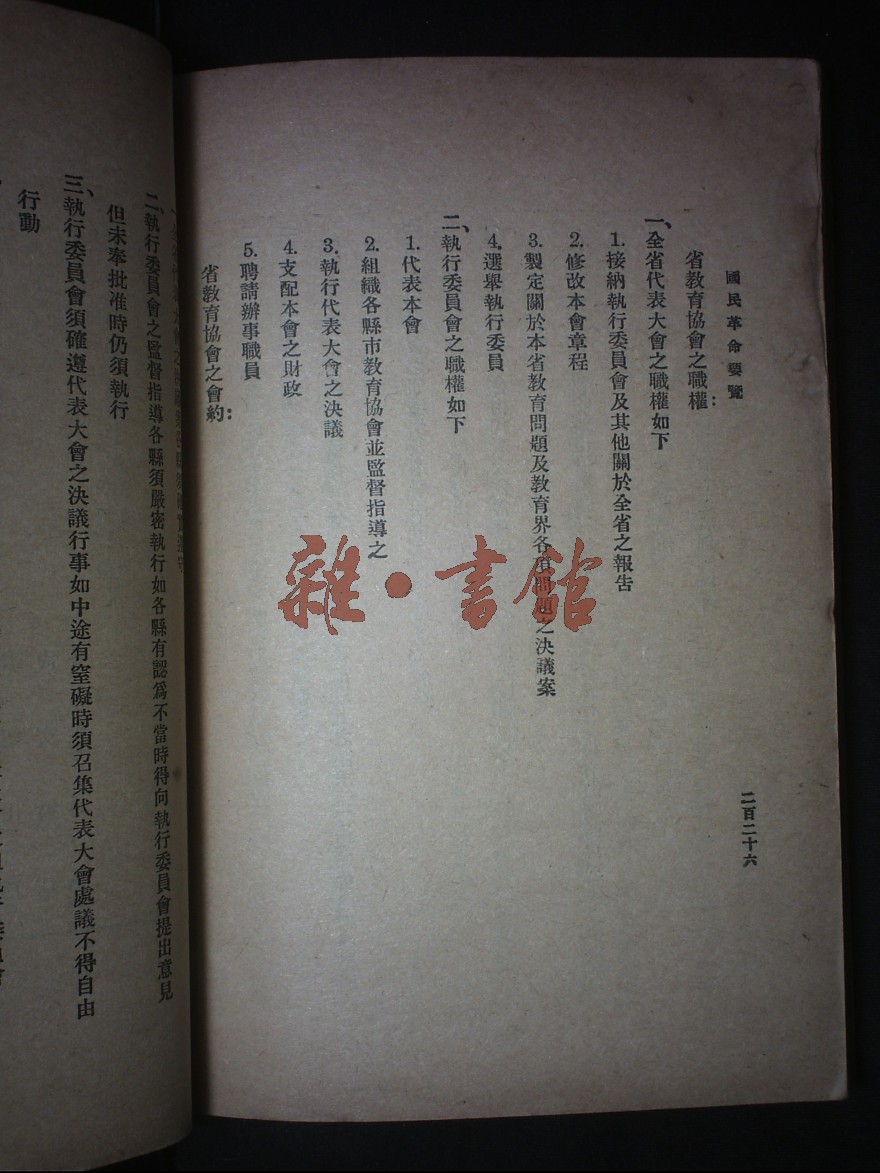 國民革命要覽
二百二十六
省教育協會之職權：
一、全省代表大會之職權如下
1. 接納執行委員會及其他關於全省之報告
2. 修改本會章程
3. 製定關於本省教育問題及教育界各項問題之決議案
4. 選舉執行委員
二、執行委員會之職權如下
1. 代表本會
2. 組織各縣市教育協會並監督指導之
3. 執行代表大會之決議
4. 支配本會之財政
5. 聘請辦事職員
省教育協會之會約：
二、執行委員會之監督指導各縣須嚴密執行如各縣有認爲不當時得向執行委員會提出意見
但未奉批准時仍須執行
三、執行委員會須確遵代表大會之決議行事如中途有窒礙時須召集代表大會處議不得自由
行動
雜·書館